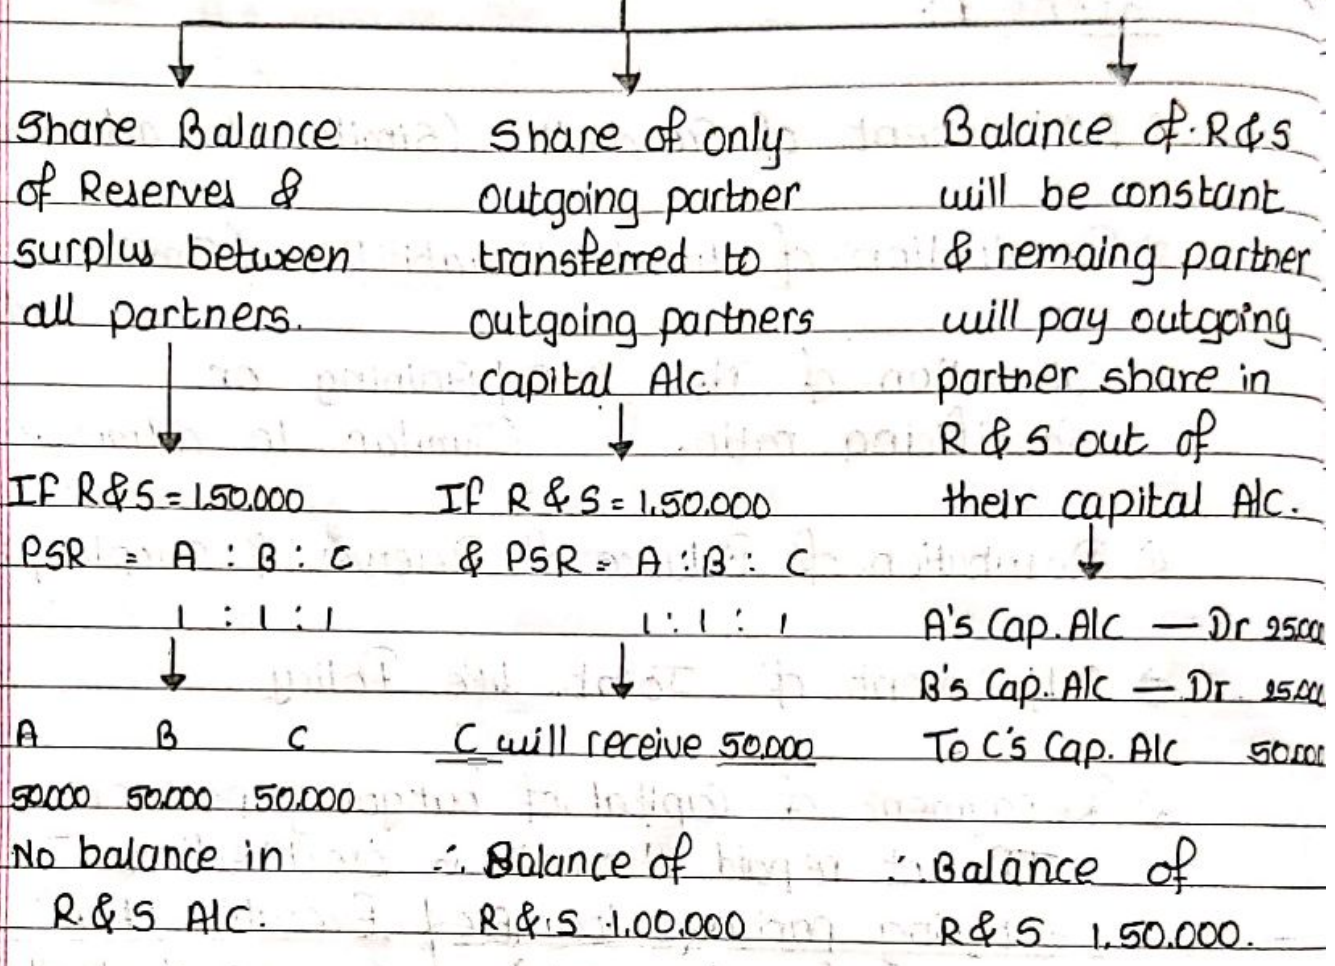 Share Balance
of Reserves &
surplus between
all partners.
If R&S = 1,50,000
PSR = A : B : C
1 : 1 : 1
A B C
50,000 50,000 50,000
No balance in
R & S A/c.
Share of only
outgoing partner
transferred to
outgoing partners
capital A/c.
If R & S = 1,50,000
& PSR = A : B : C
1 : 1 : 1
C will receive 50,000
∴ Balance of
R & S 1,00,000
Balance of R&S
will be constant
& remaing partner
will pay outgoing
partner share in
R & S out of
their capital A/c.
A's Cap. A/c — Dr 25,000
B's Cap. A/c — Dr. 25,000
To C's Cap. A/c 50,000
∴ Balance of
R & S 1,50,000.